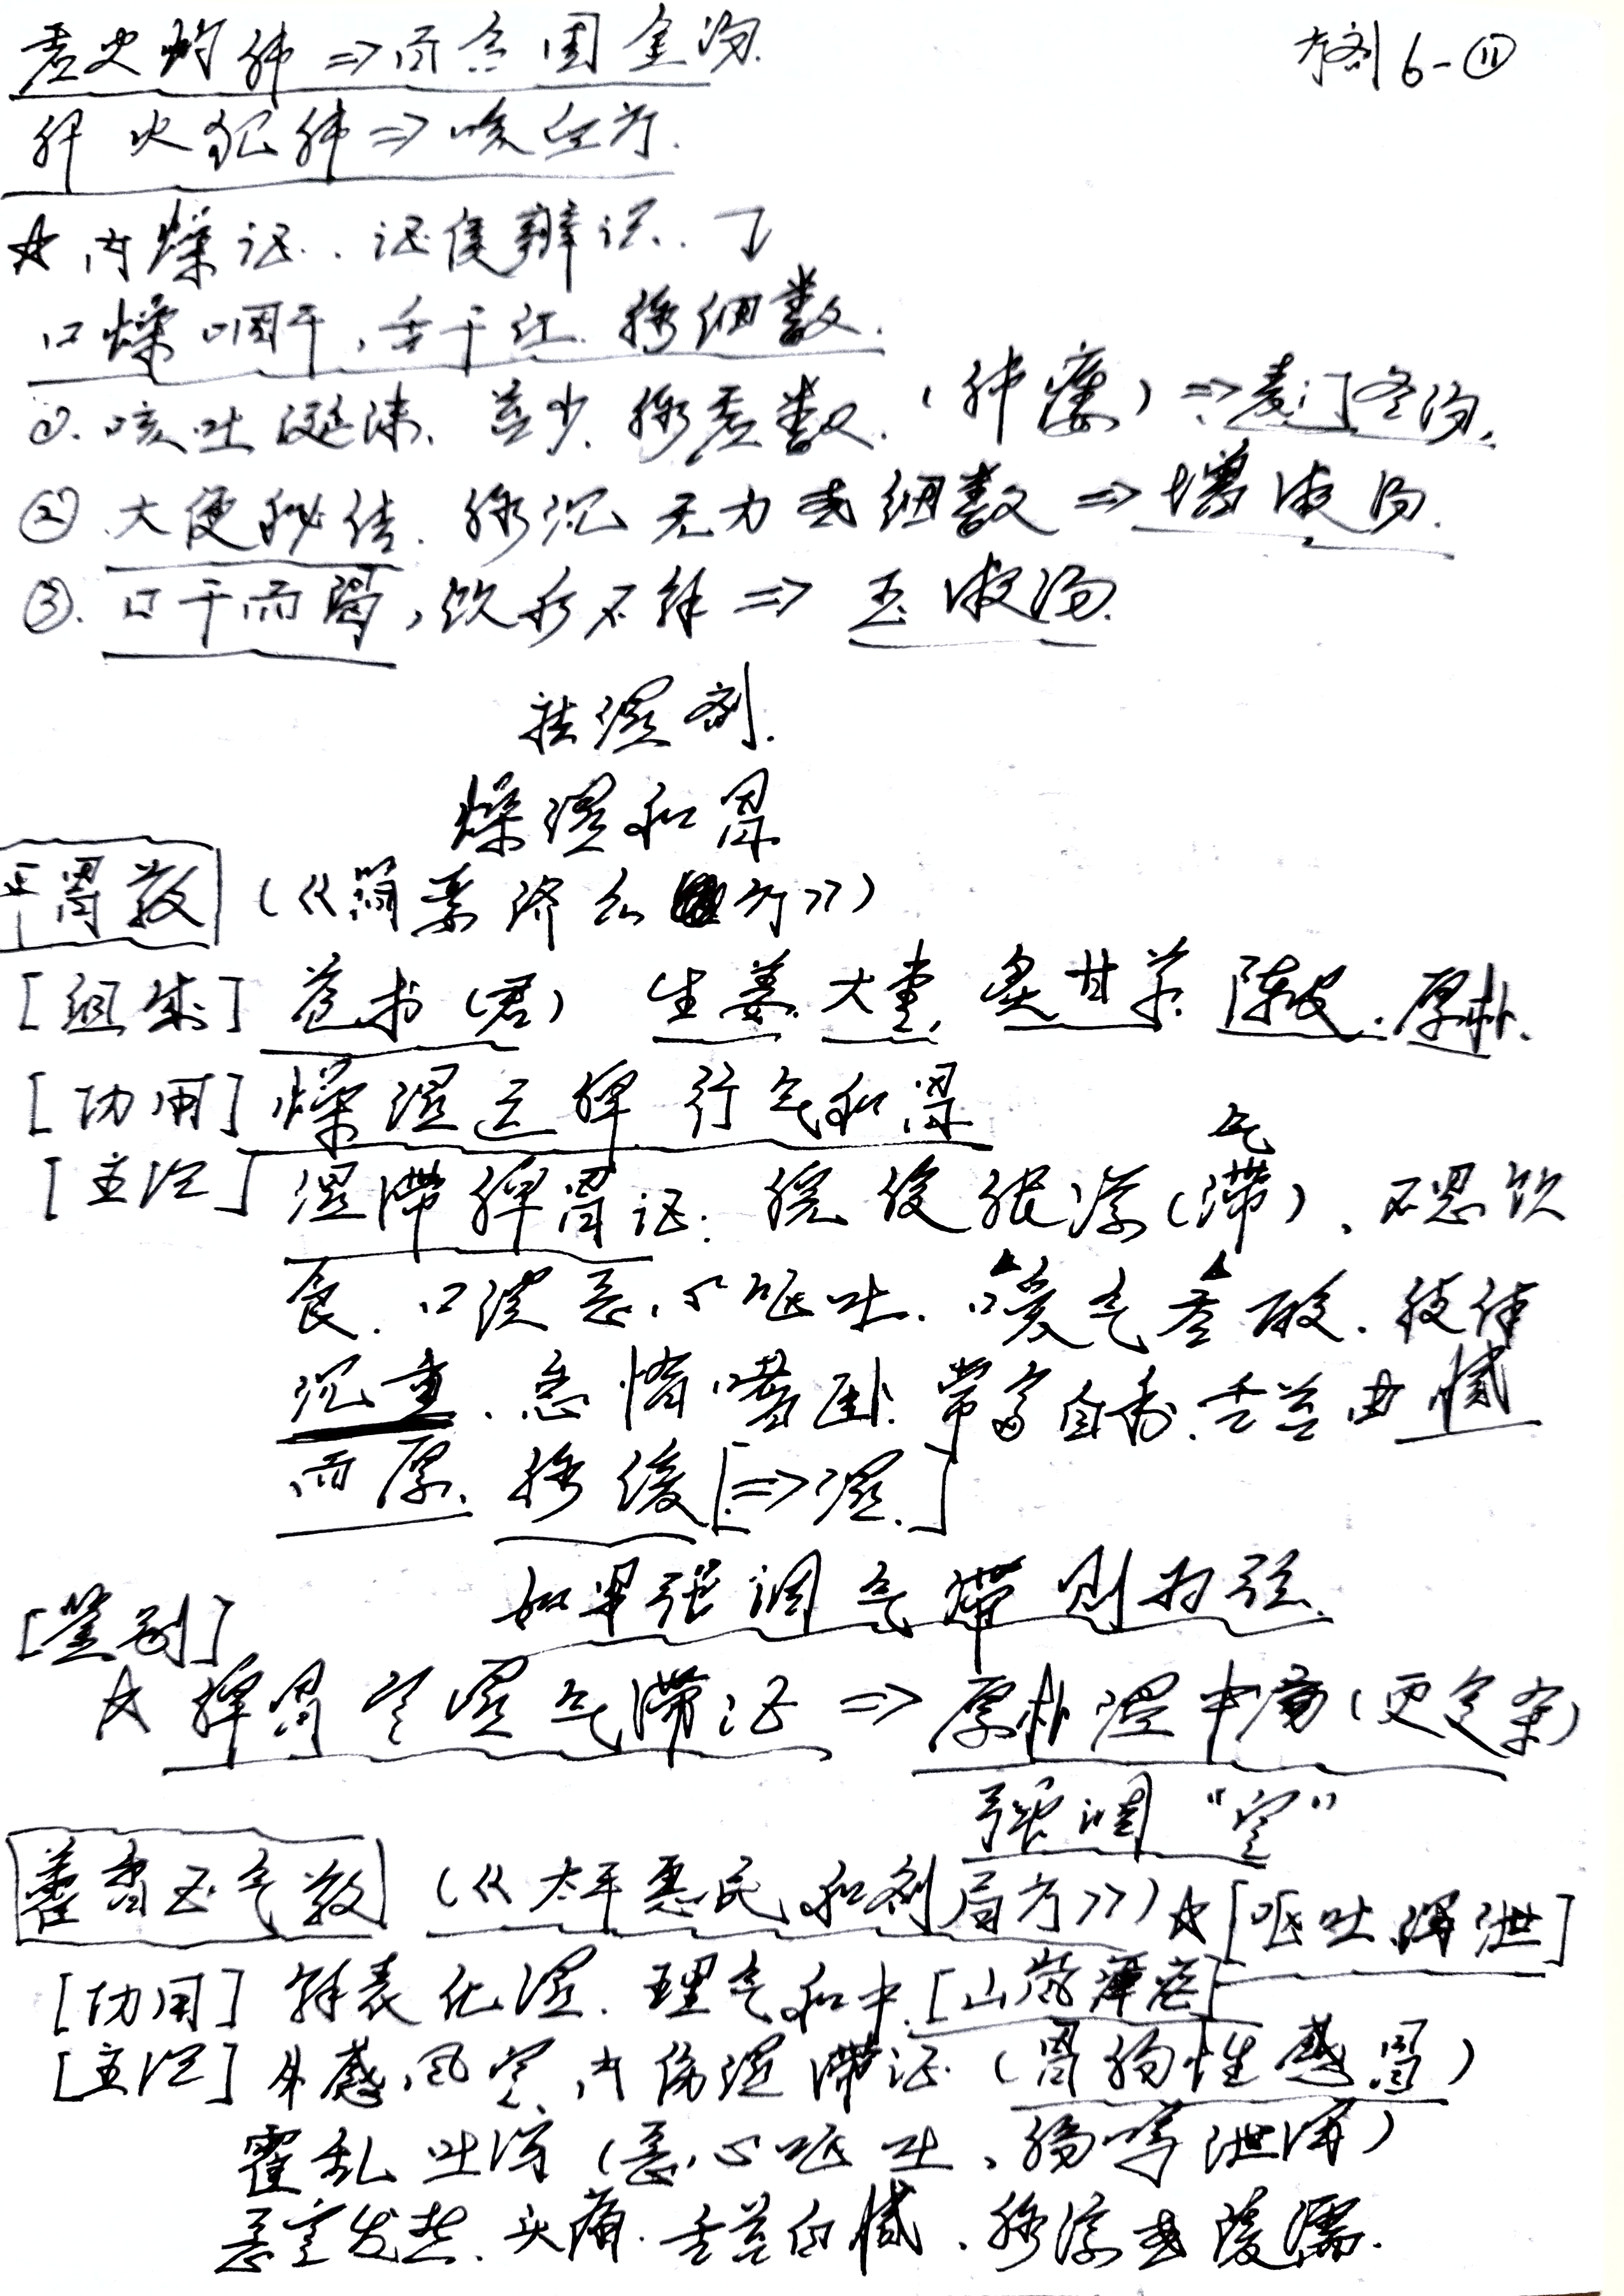 虚火灼肺⇒百合固金汤.
方剂6-⑪
肝火犯肺⇒咳血方.
☆内燥证..证候辨识..
口燥咽干,舌干红.脉细数.
①.咳吐涎沫.苔少.脉虚数.(肺痿)⇒麦门冬汤.
②.大便秘结.脉沉无力或细数⇒增液汤.
③.口干而渴,饮水不解⇒玉液汤.
祛湿剂.
燥湿和胃
平胃散(《简要济众方》)
[组成]苍术(君) 生姜.大枣.炙甘草.陈皮.厚朴.
[功用]燥湿运脾.行气和胃
气
[主治]湿滞脾胃证:脘腹胀满(滞)、不思饮
食.口淡恶心呕吐.嗳气吞酸.肢体
沉重、怠惰嗜卧.常多自利.舌苔白腻
而厚.脉缓[⇒湿.]
如果强调气滞则为弦.
[鉴别]
☆脾胃寒湿气滞证⇒厚朴温中汤(更多寒)
强调“寒”
藿香正气散(《太平惠民和剂局方》)☆[呕吐.泻泄]
[功用]解表化湿.理气和中.[山岚瘴疟]
[主治]外感风寒,内伤湿滞证.(胃肠性感冒)
霍乱吐泻(恶心呕吐、肠鸣泄泻)
恶寒发热.头痛.舌苔白腻、脉浮或濡缓.